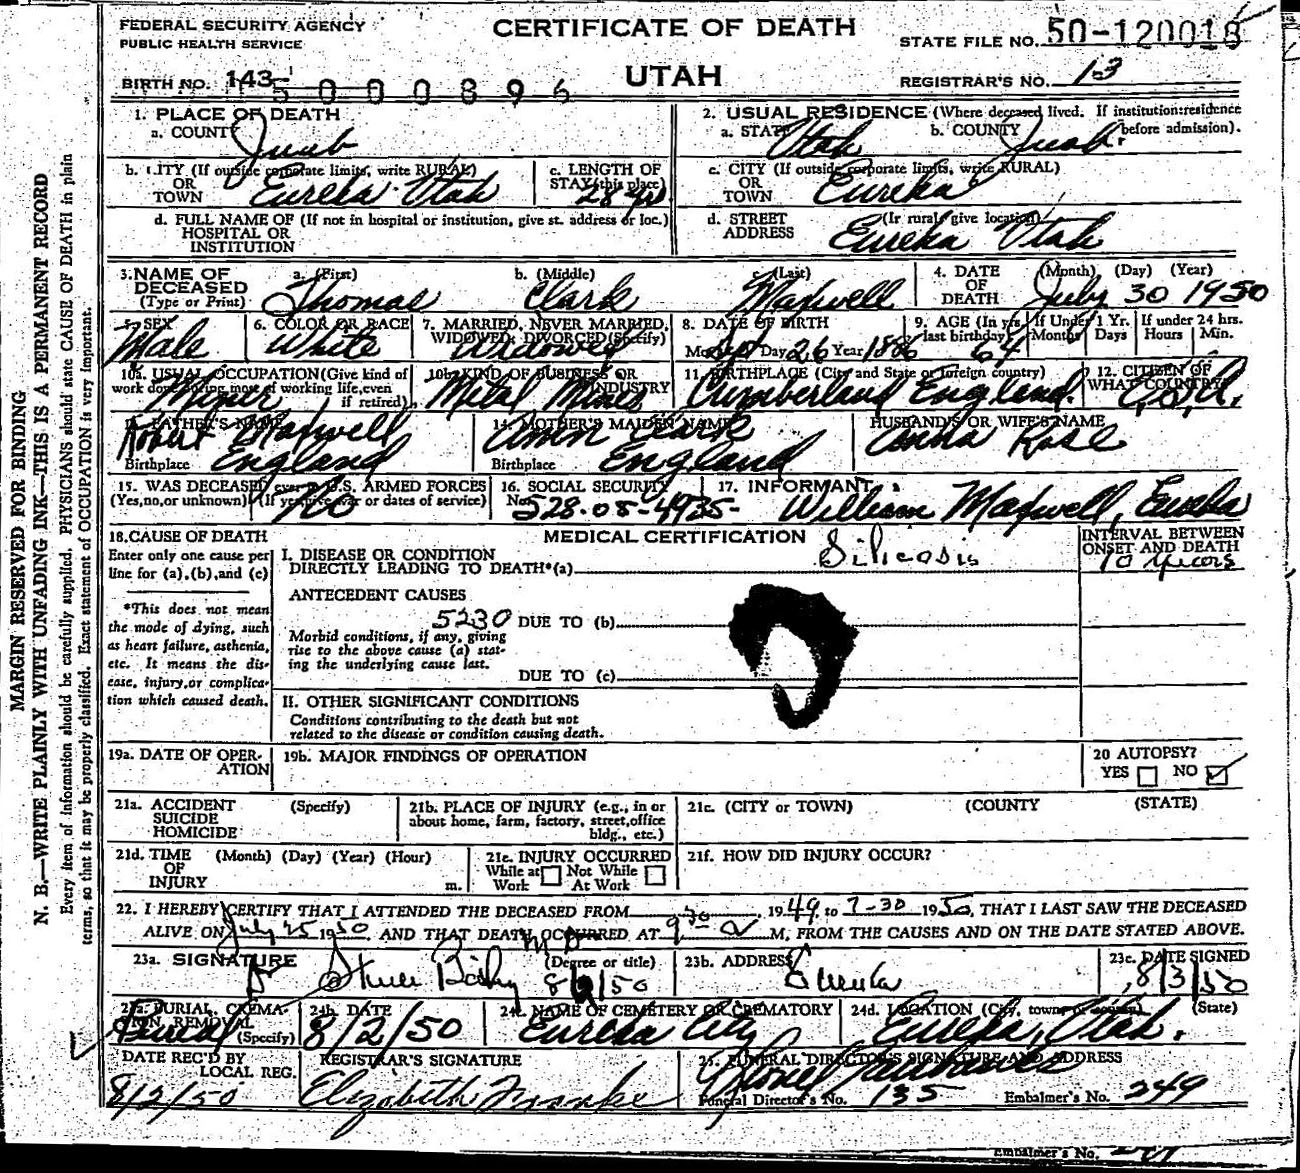 FEDERAL SECURITY AGENCY
PUBLIC HEALTH SERVICE
CERTIFICATE OF DEATH
STATE FILE NO. 50-120018
BIRTH NO. 143-5000896
UTAH
REGISTRAR'S NO. 13
1. PLACE OF DEATH
a. COUNTY Juab
2. USUAL RESIDENCE (Where deceased lived. If institution: residence before admission).
a. STATE Utah b. COUNTY Juab.
b. CITY (If outside corporate limits, write RURAL) OR TOWN Eureka Utah
c. LENGTH OF STAY (this place) 28 yr
c. CITY (If outside corporate limits, write RURAL) OR TOWN Eureka
d. FULL NAME OF (If not in hospital or institution, give st. address or loc.) HOSPITAL OR INSTITUTION
d. STREET ADDRESS (If rural, give location) Eureka Utah
3. NAME OF DECEASED (Type or Print)
a. (First) Thomas b. (Middle) Clark c. (Last) Maxwell
4. DATE OF DEATH (Month) (Day) (Year) July 30 1950
5. SEX Male
6. COLOR OR RACE White
7. MARRIED, NEVER MARRIED, WIDOWED, DIVORCED (Specify) Widowed
8. DATE OF BIRTH Mo. Sept Day 26 Year 1886
9. AGE (In yrs. last birthday) 64
If Under 1 Yr. Months Days
If under 24 hrs. Hours Min.
10a. USUAL OCCUPATION (Give kind of work done during most of working life, even if retired) Miner
10b. KIND OF BUSINESS OR INDUSTRY Metal Mines
11. BIRTHPLACE (City and State or foreign country) Cumberland England.
12. CITIZEN OF WHAT COUNTRY U.S.A.
13. FATHER'S NAME Robert Maxwell
Birthplace England
14. MOTHER'S MAIDEN NAME Ann Clark
Birthplace England
HUSBAND'S OR WIFE'S NAME Anna Rose
15. WAS DECEASED ever in U.S. ARMED FORCES
(Yes, no, or unknown) (If yes, give war or dates of service) No
16. SOCIAL SECURITY No. 528-05-4935-
17. INFORMANT William Maxwell, Eureka
18. CAUSE OF DEATH
Enter only one cause per line for (a), (b), and (c)
*This does not mean the mode of dying, such as heart failure, asthenia, etc. It means the disease, injury, or complication which caused death.
MEDICAL CERTIFICATION
INTERVAL BETWEEN ONSET AND DEATH
I. DISEASE OR CONDITION DIRECTLY LEADING TO DEATH*(a) Silicosis
10 years
ANTECEDENT CAUSES
5230 DUE TO (b)
Morbid conditions, if any, giving rise to the above cause (a) stating the underlying cause last.
DUE TO (c)
II. OTHER SIGNIFICANT CONDITIONS
Conditions contributing to the death but not related to the disease or condition causing death.
19a. DATE OF OPERATION
19b. MAJOR FINDINGS OF OPERATION
20 AUTOPSY?
YES NO
21a. ACCIDENT SUICIDE HOMICIDE (Specify)
21b. PLACE OF INJURY (e.g., in or about home, farm, factory, street, office bldg., etc.)
21c. (CITY or TOWN) (COUNTY (STATE)
21d. TIME OF INJURY (Month) (Day) (Year) (Hour) m.
21e. INJURY OCCURRED
While at Work Not While At Work
21f. HOW DID INJURY OCCUR?
22. I HEREBY CERTIFY THAT I ATTENDED THE DECEASED FROM 1949, to 7-30 1950, THAT I LAST SAW THE DECEASED
ALIVE ON July 25 1950, AND THAT DEATH OCCURRED AT 9 30 a M, FROM THE CAUSES AND ON THE DATE STATED ABOVE.
23a. SIGNATURE M D (Degree or title)
23b. ADDRESS Eureka
23c. DATE SIGNED 8/3/50
24a. BURIAL, CREMATION, REMOVAL (Specify) Burial
24b. DATE 8/2/50
24c. NAME OF CEMETERY OR CREMATORY Eureka City
24d. LOCATION (City, town, or county) (State) Eureka, Utah.
DATE REC'D BY LOCAL REG. 8/2/50
REGISTRAR'S SIGNATURE Elizabeth Franke
25. FUNERAL DIRECTOR'S SIGNATURE AND ADDRESS
Funeral Director's No. 135 Embalmer's No. 249
Embalmer's No.
MARGIN RESERVED FOR BINDING
N. B.—WRITE PLAINLY WITH UNFADING INK—THIS IS A PERMANENT RECORD
Every item of information should be carefully supplied. PHYSICIANS should state CAUSE OF DEATH in plain
terms, so that it may be properly classified. Exact statement of OCCUPATION is very important.